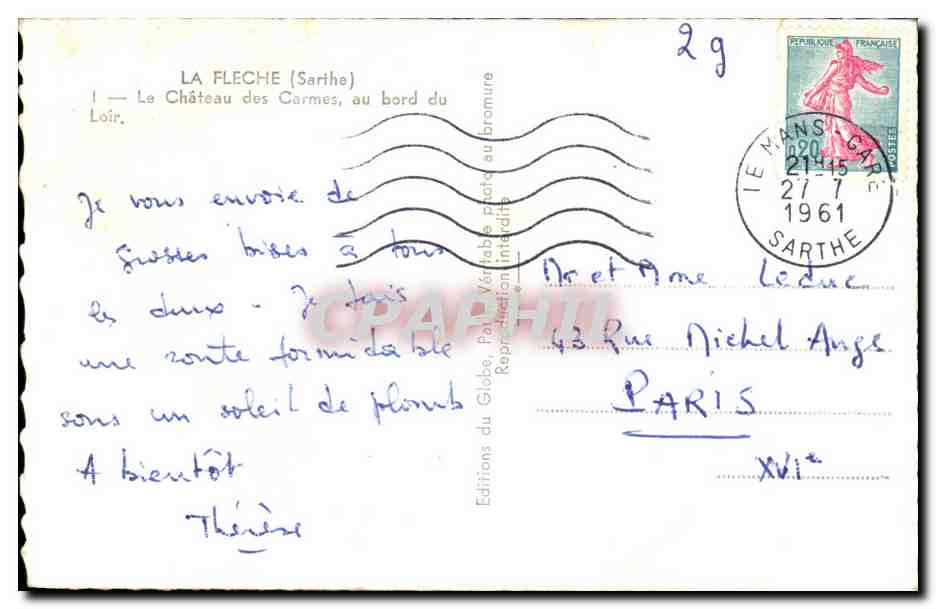 2 g
REPUBLIQUE FRANÇAISE
0,20
POSTES
LE MANS - GARE
21H15
27 7
1961
SARTHE
LA FLECHE (Sarthe)
1 — Le Château des Carmes, au bord du
Loir.
Je vous envoie de
grosses bises à tous
les deux - Je fais
une route formidable
sous un soleil de plomb
A bientôt
Thérèse
Editions du Globe, Paris Véritable photo au bromure
Reproduction interdite
CPAPHIL
Mr et Mme Leduc
43 Rue Michel Ange
PARIS
XVIe